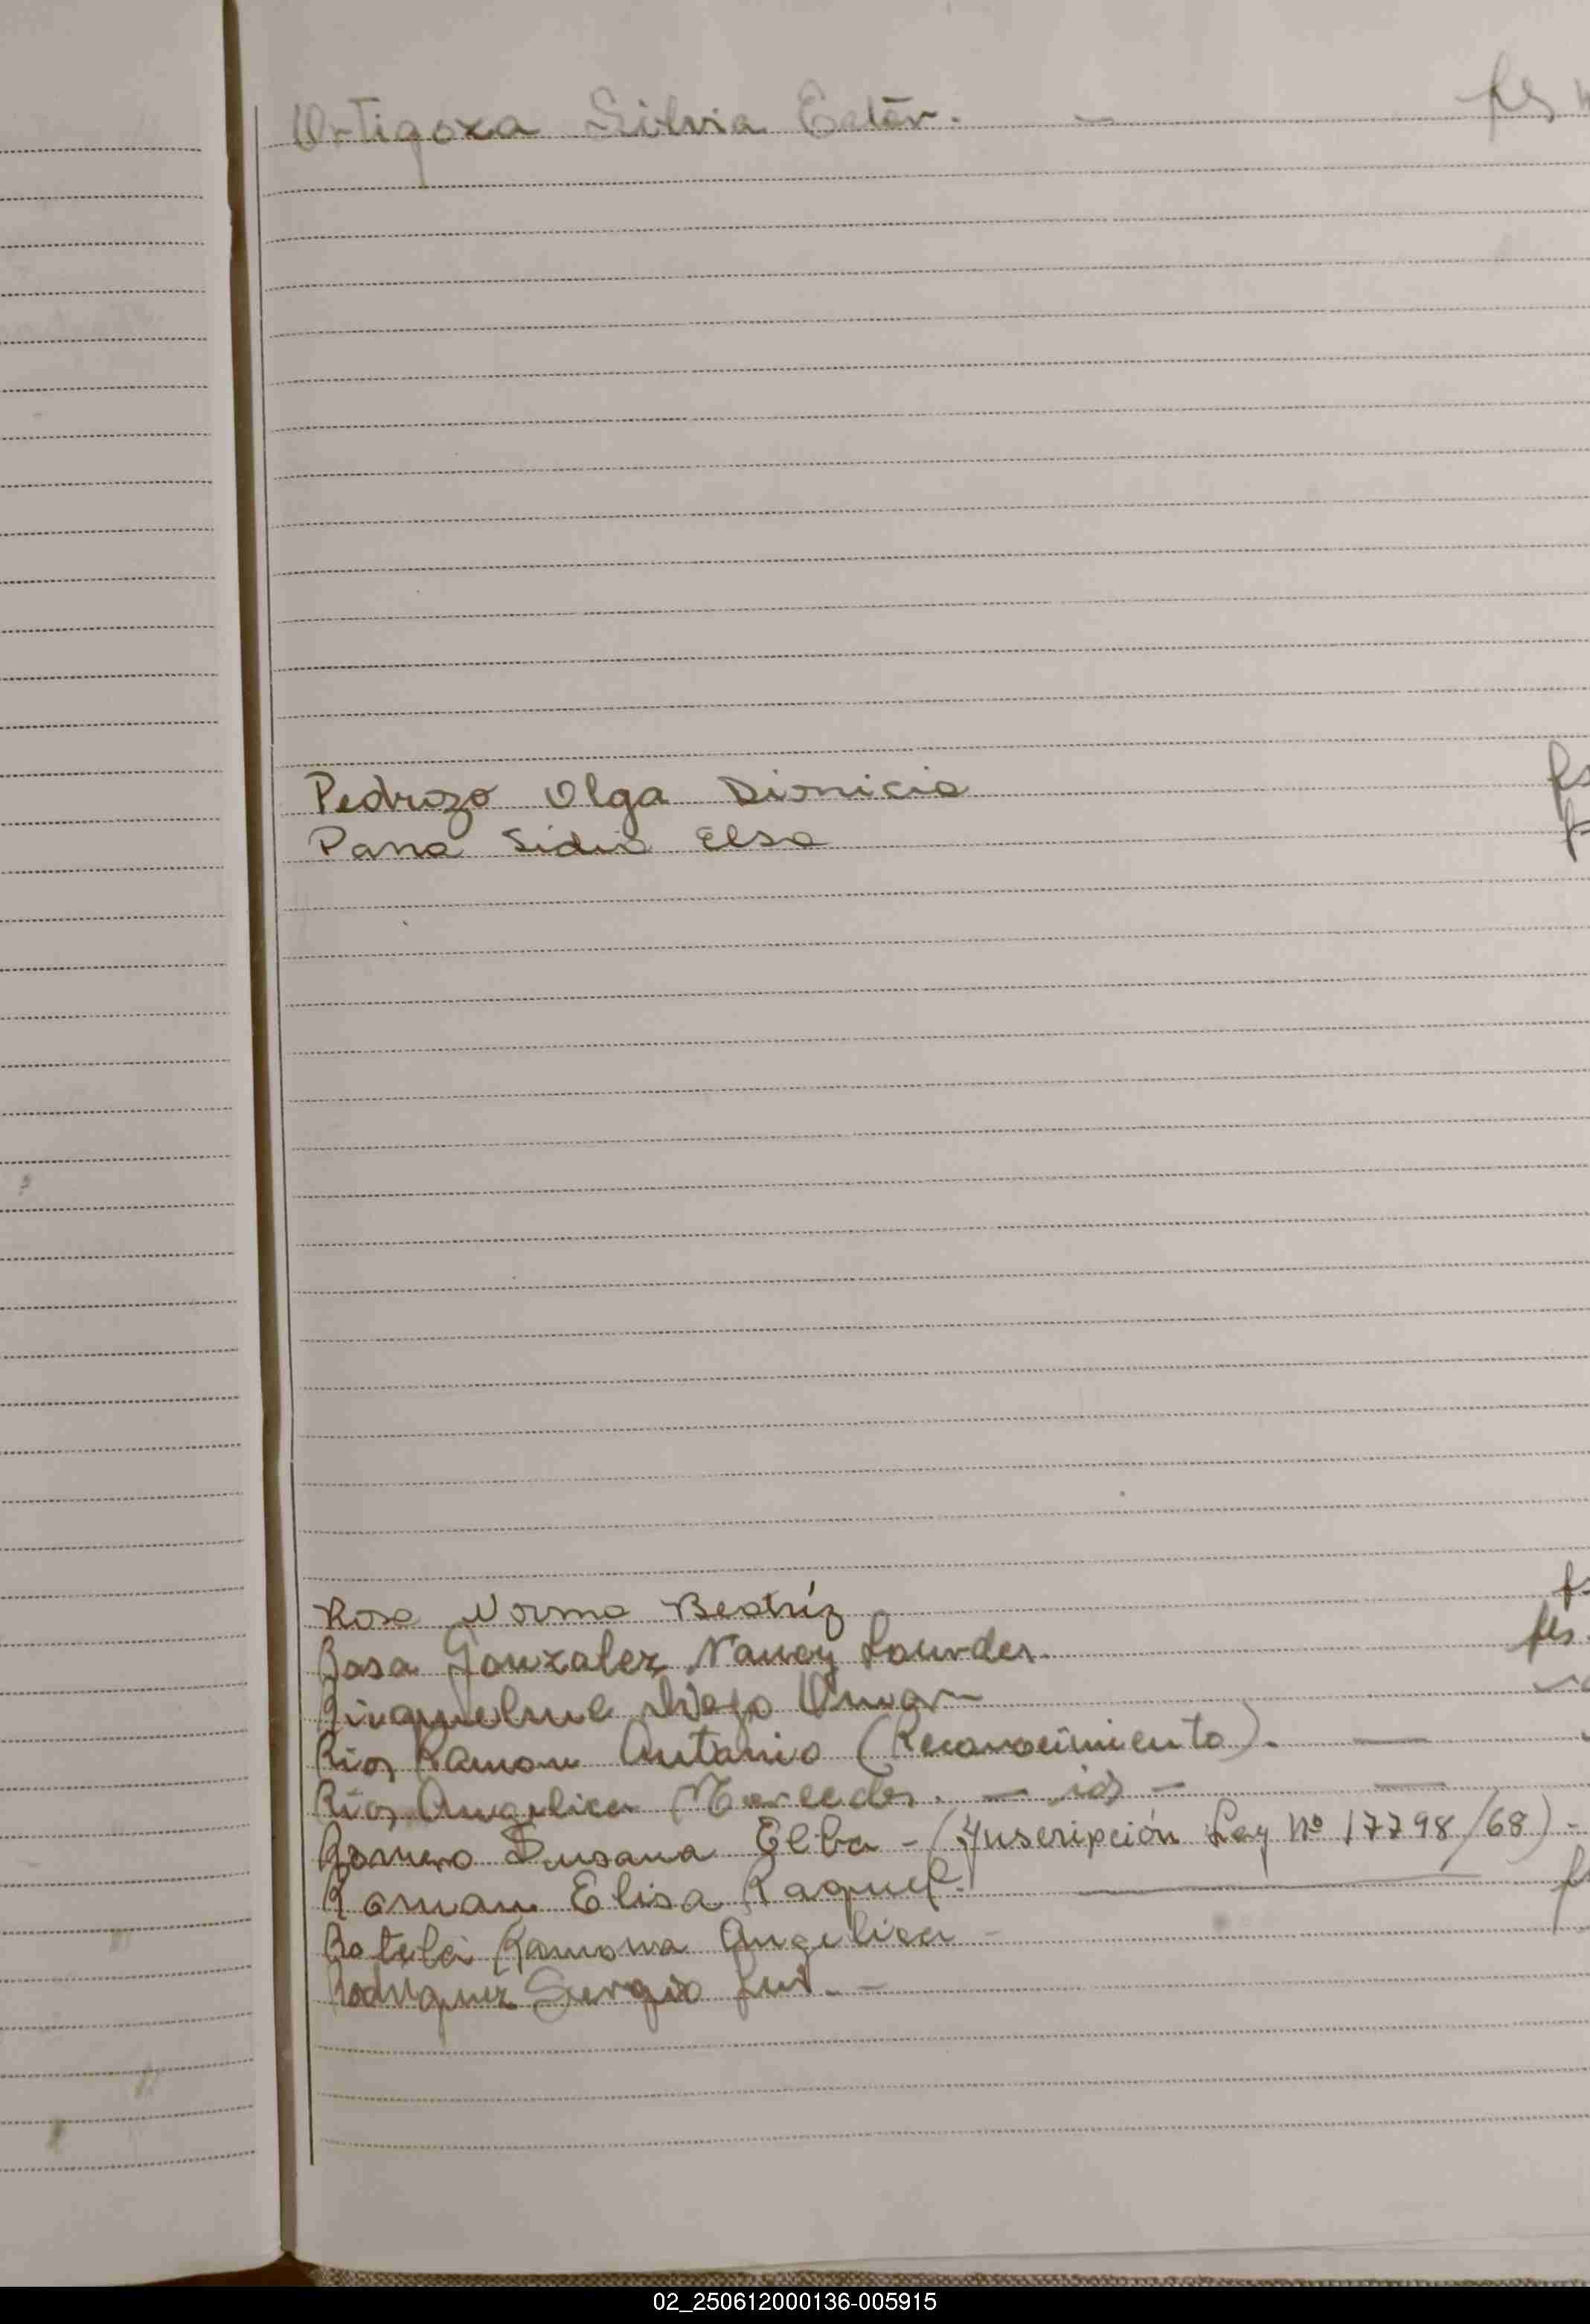 Ortigoza Silvia Ester. — fs
Pedrozo Olga Dionicia fs
Pana Lidia Elsa f
Rosa Norma Beatríz fs
Gonzalez Nancy Lourdes. fs.
Riquelme Diego Omar
Rios Ramon Antonio (Reconocimiento). —
Rios Angelica Mercedes. — id — —
Romero Susana Elba - (Inscripción Ley Nº 17798/68) -
Roman Elisa Raquel. — f
Ramona Angelica -
Rodriguez Sergio Luis. -
02_250612000136-005915